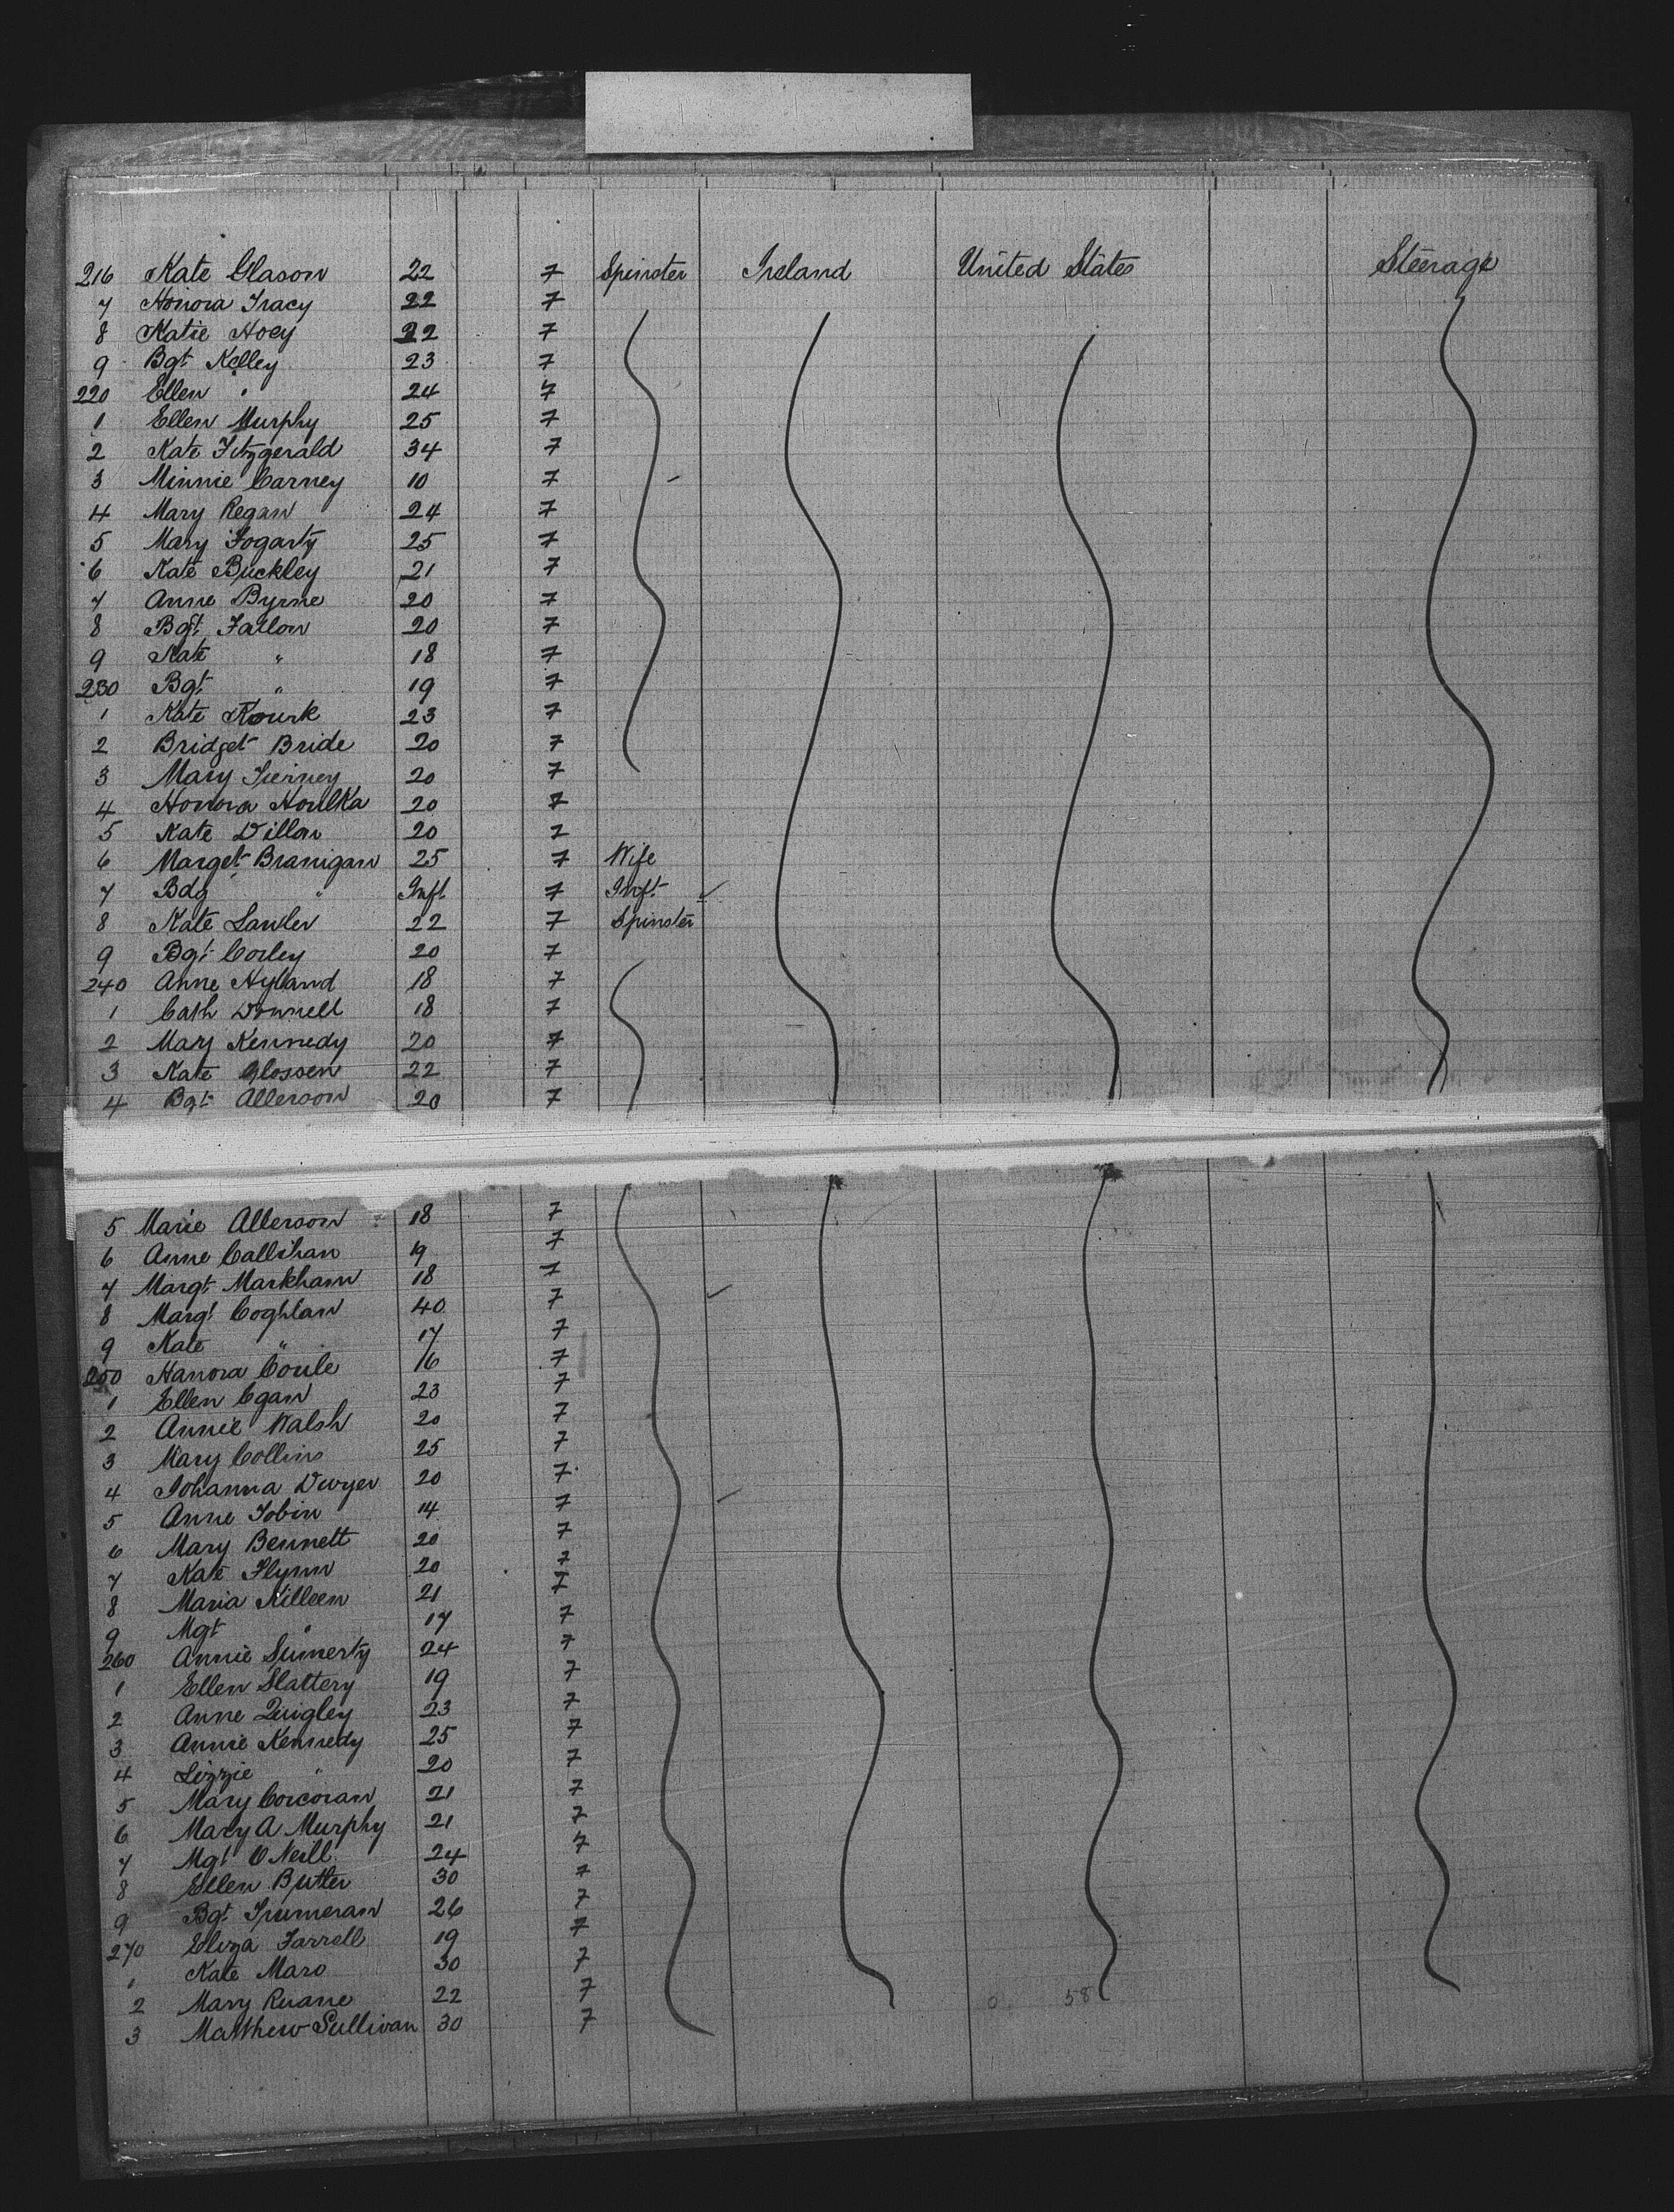 216 Kate Glason 22 7 Spinster Ireland United States Steerage
7 Honora Tracy 22 7
8 Katie Hoey 22 7
9 Bgt Kelley 23 7
220 Ellen " 24 7
1 Ellen Murphy 25 7
2 Kate Fitzgerald 34 7
3 Minnie Carney 10 7
4 Mary Regan 24 7
5 Mary Fogarty 25 7
6 Kate Buckley 21 7
7 Anne Byrne 20 7
8 Bgt Fallon 20 7
9 Kate " 18 7
230 Bgt " 19 7
1 Kate Rourk 23 7
2 Bridget Bride 20 7
3 Mary Tierney 20 7
4 Honora Houlka 20 7
5 Kate Dillon 20 7
6 Marget Branigan 25 7 Wife
7 Bdg " Inft 7 Inft
8 Kate Lawler 22 7 Spinster
9 Bgt Corley 20 7
240 Anne Hyland 18 7
1 Cath Donnell 18 7
2 Mary Kennedy 20 7
3 Kate Glossen 22 7
4 Bgt Allerson 20 7
5 Marie Allerson 18 7
6 Anne Callihan 19 7
7 Margt Markham 18 7
8 Margt Coghlan 40 7
9 Kate " 17 7
250 Hanora Coule 16 7
1 Ellen Egan 23 7
2 Annie Walsh 20 7
3 Mary Collins 25 7
4 Johanna Dwyer 20 7
5 Anne Tobin 14 7
6 Mary Bennett 20 7
7 Kate Flynn 20 7
8 Maria Killeen 21 7
9 Mgt " 17 7
260 Annie 24 7
1 Ellen Slattery 19 7
2 Anne Quigley 23 7
3 Annie Kennedy 25 7
4 Lizzie " 20 7
5 Mary Corcoran 21 7
6 Mary A Murphy 21 7
7 Mgt O Neill 24 7
8 Ellen Butler 30 7
9 Bgt 26 7
270 Eliza Farrell 19 7
1 Kate Maro 30 7
2 Mary Ruane 22 7 0 58
3 Matthew Sullivan 30 7